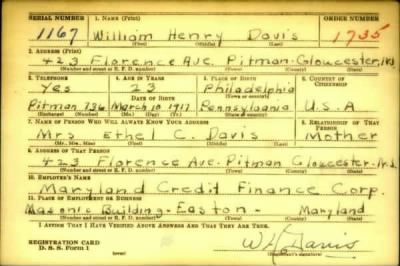 SERIAL NUMBER 1. NAME (Print) ORDER NUMBER
1167 William Henry Davis 1735
(First) (Middle) (Last)
2. ADDRESS (Print)
423 Florence Ave. Pitman Gloucester, N.J.
(Number and street or R. F. D. number) (Town) (County) (State)
3. TELEPHONE 4. AGE IN YEARS 5. PLACE OF BIRTH 6. COUNTRY OF CITIZENSHIP
Yes 23 Philadelphia
DATE OF BIRTH (Town or county)
Pitman 736 March 10 1917 Pennsylvania U.S.A
(Exchange) (Number) (Mo.) (Day) (Yr.) (State or country)
7. NAME OF PERSON WHO WILL ALWAYS KNOW YOUR ADDRESS 8. RELATIONSHIP OF THAT PERSON
Mrs Ethel C. Davis Mother
(Mr., Mrs., Miss) (First) (Middle) (Last)
9. ADDRESS OF THAT PERSON
423 Florence Ave. Pitman Gloucester N.J.
(Number and street or R. F. D. number) (Town) (County) (State)
10. EMPLOYER'S NAME
Maryland Credit Finance Corp.
11. PLACE OF EMPLOYMENT OR BUSINESS
Masonic Building - Easton - Maryland
(Number and street or R. F. D. number) (Town) (County) (State)
I AFFIRM THAT I HAVE VERIFIED ABOVE ANSWERS AND THAT THEY ARE TRUE.
REGISTRATION CARD
D. S. S. Form 1 (Registrant's signature)
W H Davis